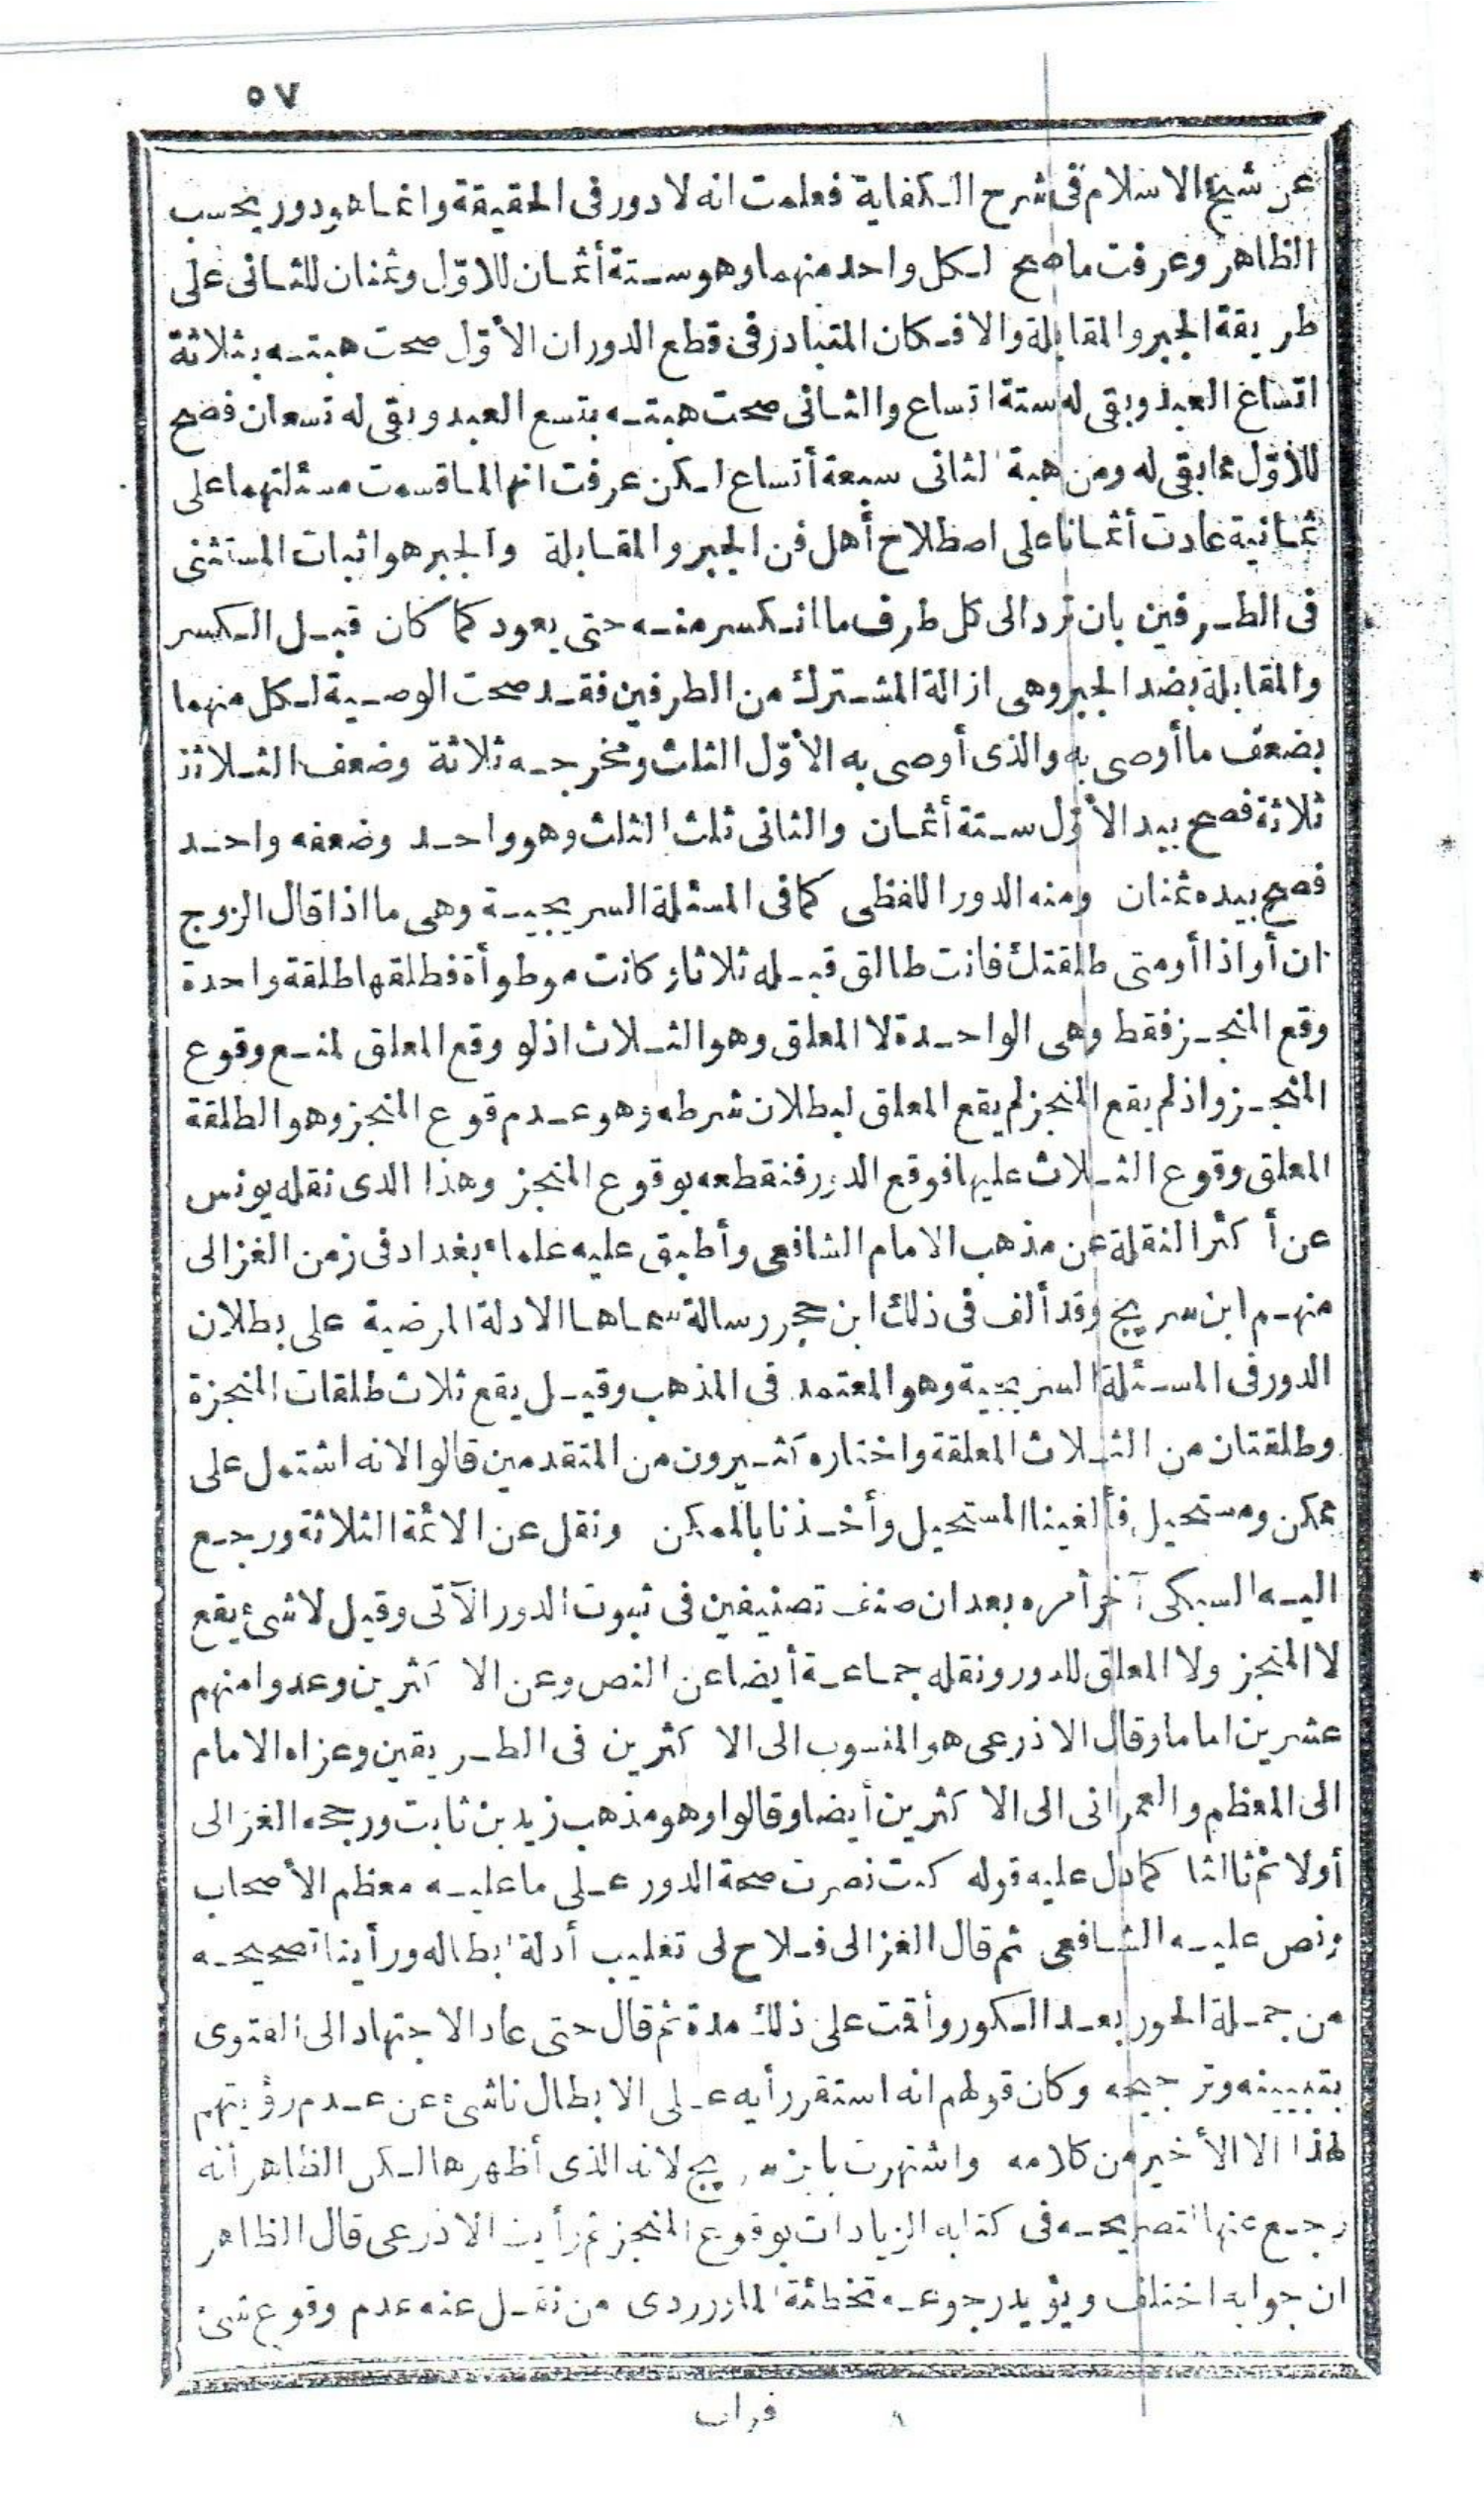 ٥٧
عن شيخ الاسلام فى شرح الكفاية فعلمت انه لا دور فى الحقيقة وانما هو دور بحسب
الظاهر وعرفت ما صح لكل واحد منهما وهو ستة أثمان للاوّل وثمنان للثانى على
طريقة الجبر والمقابلة والا فكان المتبادر فى قطع الدور ان الأوّل صحت هبته بثلاثة
اتساع العبد وبقى له ستة اتساع والثانى صحت هبته بتسع العبد وبقى له تسعان فصح
للأوّل مما بقى له ومن هبة الثانى سبعة أتساع لكن عرفت انها لما قسمت مسئلتهما على
ثمانية عادت أثمانا على اصطلاح أهل فن الجبر والمقابلة والجبر هو اثبات المستثنى
فى الطرفين بان ترد الى كل طرف ما انكسر منه حتى يعود كما كان قبل الكسر
والمقابلة بضد الجبر وهى ازالة المشترك من الطرفين فقد صحت الوصية لكل منهما
بضعف ما أوصى به والذى أوصى به الأوّل الثلث ومخرجه ثلاثة وضعف الثلاثة
ثلاثة فصح بيد الأوّل ستة أثمان والثانى ثلث الثلث وهو واحد وضعفه واحد
فصح بيده ثمنان ومنه الدور اللفظى كما فى المسئلة السريجية وهى ما اذا قال الزوج
ان أو اذا أو متى طلقتك فانت طالق قبله ثلاثا وكانت موطوأة فطلقها طلقة واحدة
وقع المنجز فقط وهى الواحدة لا المعلق وهو الثلاث اذ لو وقع المعلق لمنع وقوع
المنجز واذ لم يقع المنجز لم يقع المعلق لبطلان شرطه وهو عدم قوع المنجز وهو الطلقة
المعلق وقوع الثلاث عليها فوقع الدور فنقطعه بوقوع المنجز وهذا الدى نقله يونس
عن أكثر النقلة عن مذهب الامام الشافعى وأطبق عليه علماء بغداد فى زمن الغزالى
منهم ابن سريج وقد ألف فى ذلك ابن حجر رسالة سماها الادلة المرضية على بطلان
الدور فى المسئلة السريجية وهو المعتمد فى المذهب وقيل يقع ثلاث طلقات المنجزة
وطلقتان من الثلاث المعلقة واختاره كثيرون من المتقدمين قالوا لانه اشتمل على
ممكن ومستحيل فألغينا المستحيل وأخذنا بالممكن ونقل عن الائمة الثلاثة ورجع
اليه السبكى آخر أمره بعد ان صنف تصنيفين فى ثبوت الدور الآتى وقيل لا شئ يقع
لا المنجز ولا المعلق للدور ونقله جماعة أيضا عن النص وعن الا كثرين وعدوا منهم
عشرين اماما وقال الاذرعى هو المنسوب الى الا كثرين فى الطريقين وعزاه الامام
الى المعظم والعمرانى الى الا كثرين أيضا وقالوا وهو مذهب زيد بن ثابت ورجحه الغزالى
أولا ثم ثالثا كما دل عليه قوله كنت نصرت صحة الدور على ما عليه معظم الأصحاب
ونص عليه الشافعى ثم قال الغزالى فلاح لى تغليب أدلة ابطاله ورأينا تصحيحه
من جملة الحور بعد الكور وأقمت على ذلك مدة ثم قال حتى عاد الاجتهاد الى الفتوى
بتبيينه وترجيحه وكان قولهم انه استقر رأيه على الابطال ناشئ عن عدم رؤيتهم
لهذا الا الأخير من كلامه واشتهرت بابن سريج لانه الذى أظهرها لكن الظاهر أنه
رجع عنها لتصريحه فى كتابه الزيادات بوقوع المنجز ثم رأيت الاذرعى قال الظاهر
ان جوابه اختلف ويؤيد رجوعه تخطئة الماوردى من نقل عنه عدم وقوع شئ
٨